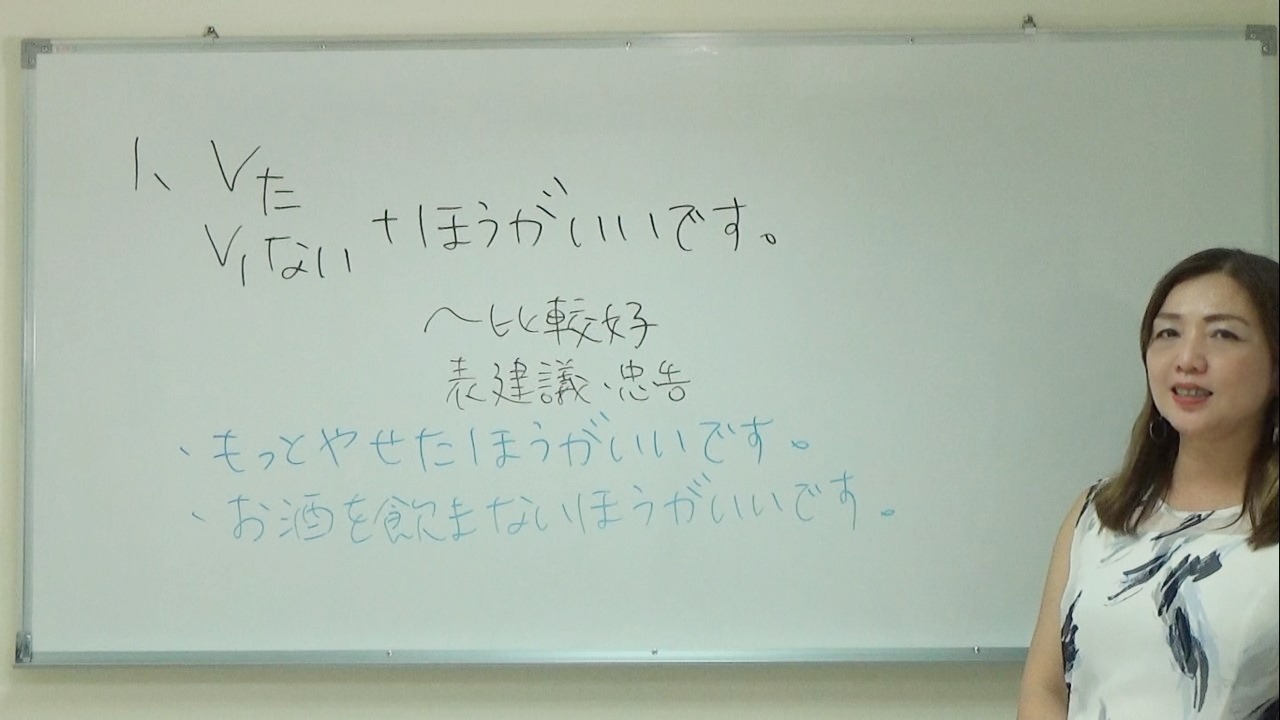 1、Vた
Vイない +ほうがいいです。
～比較好
表建議、忠告
・もっとやせたほうがいいです。
・お酒を飲まないほうがいいです。